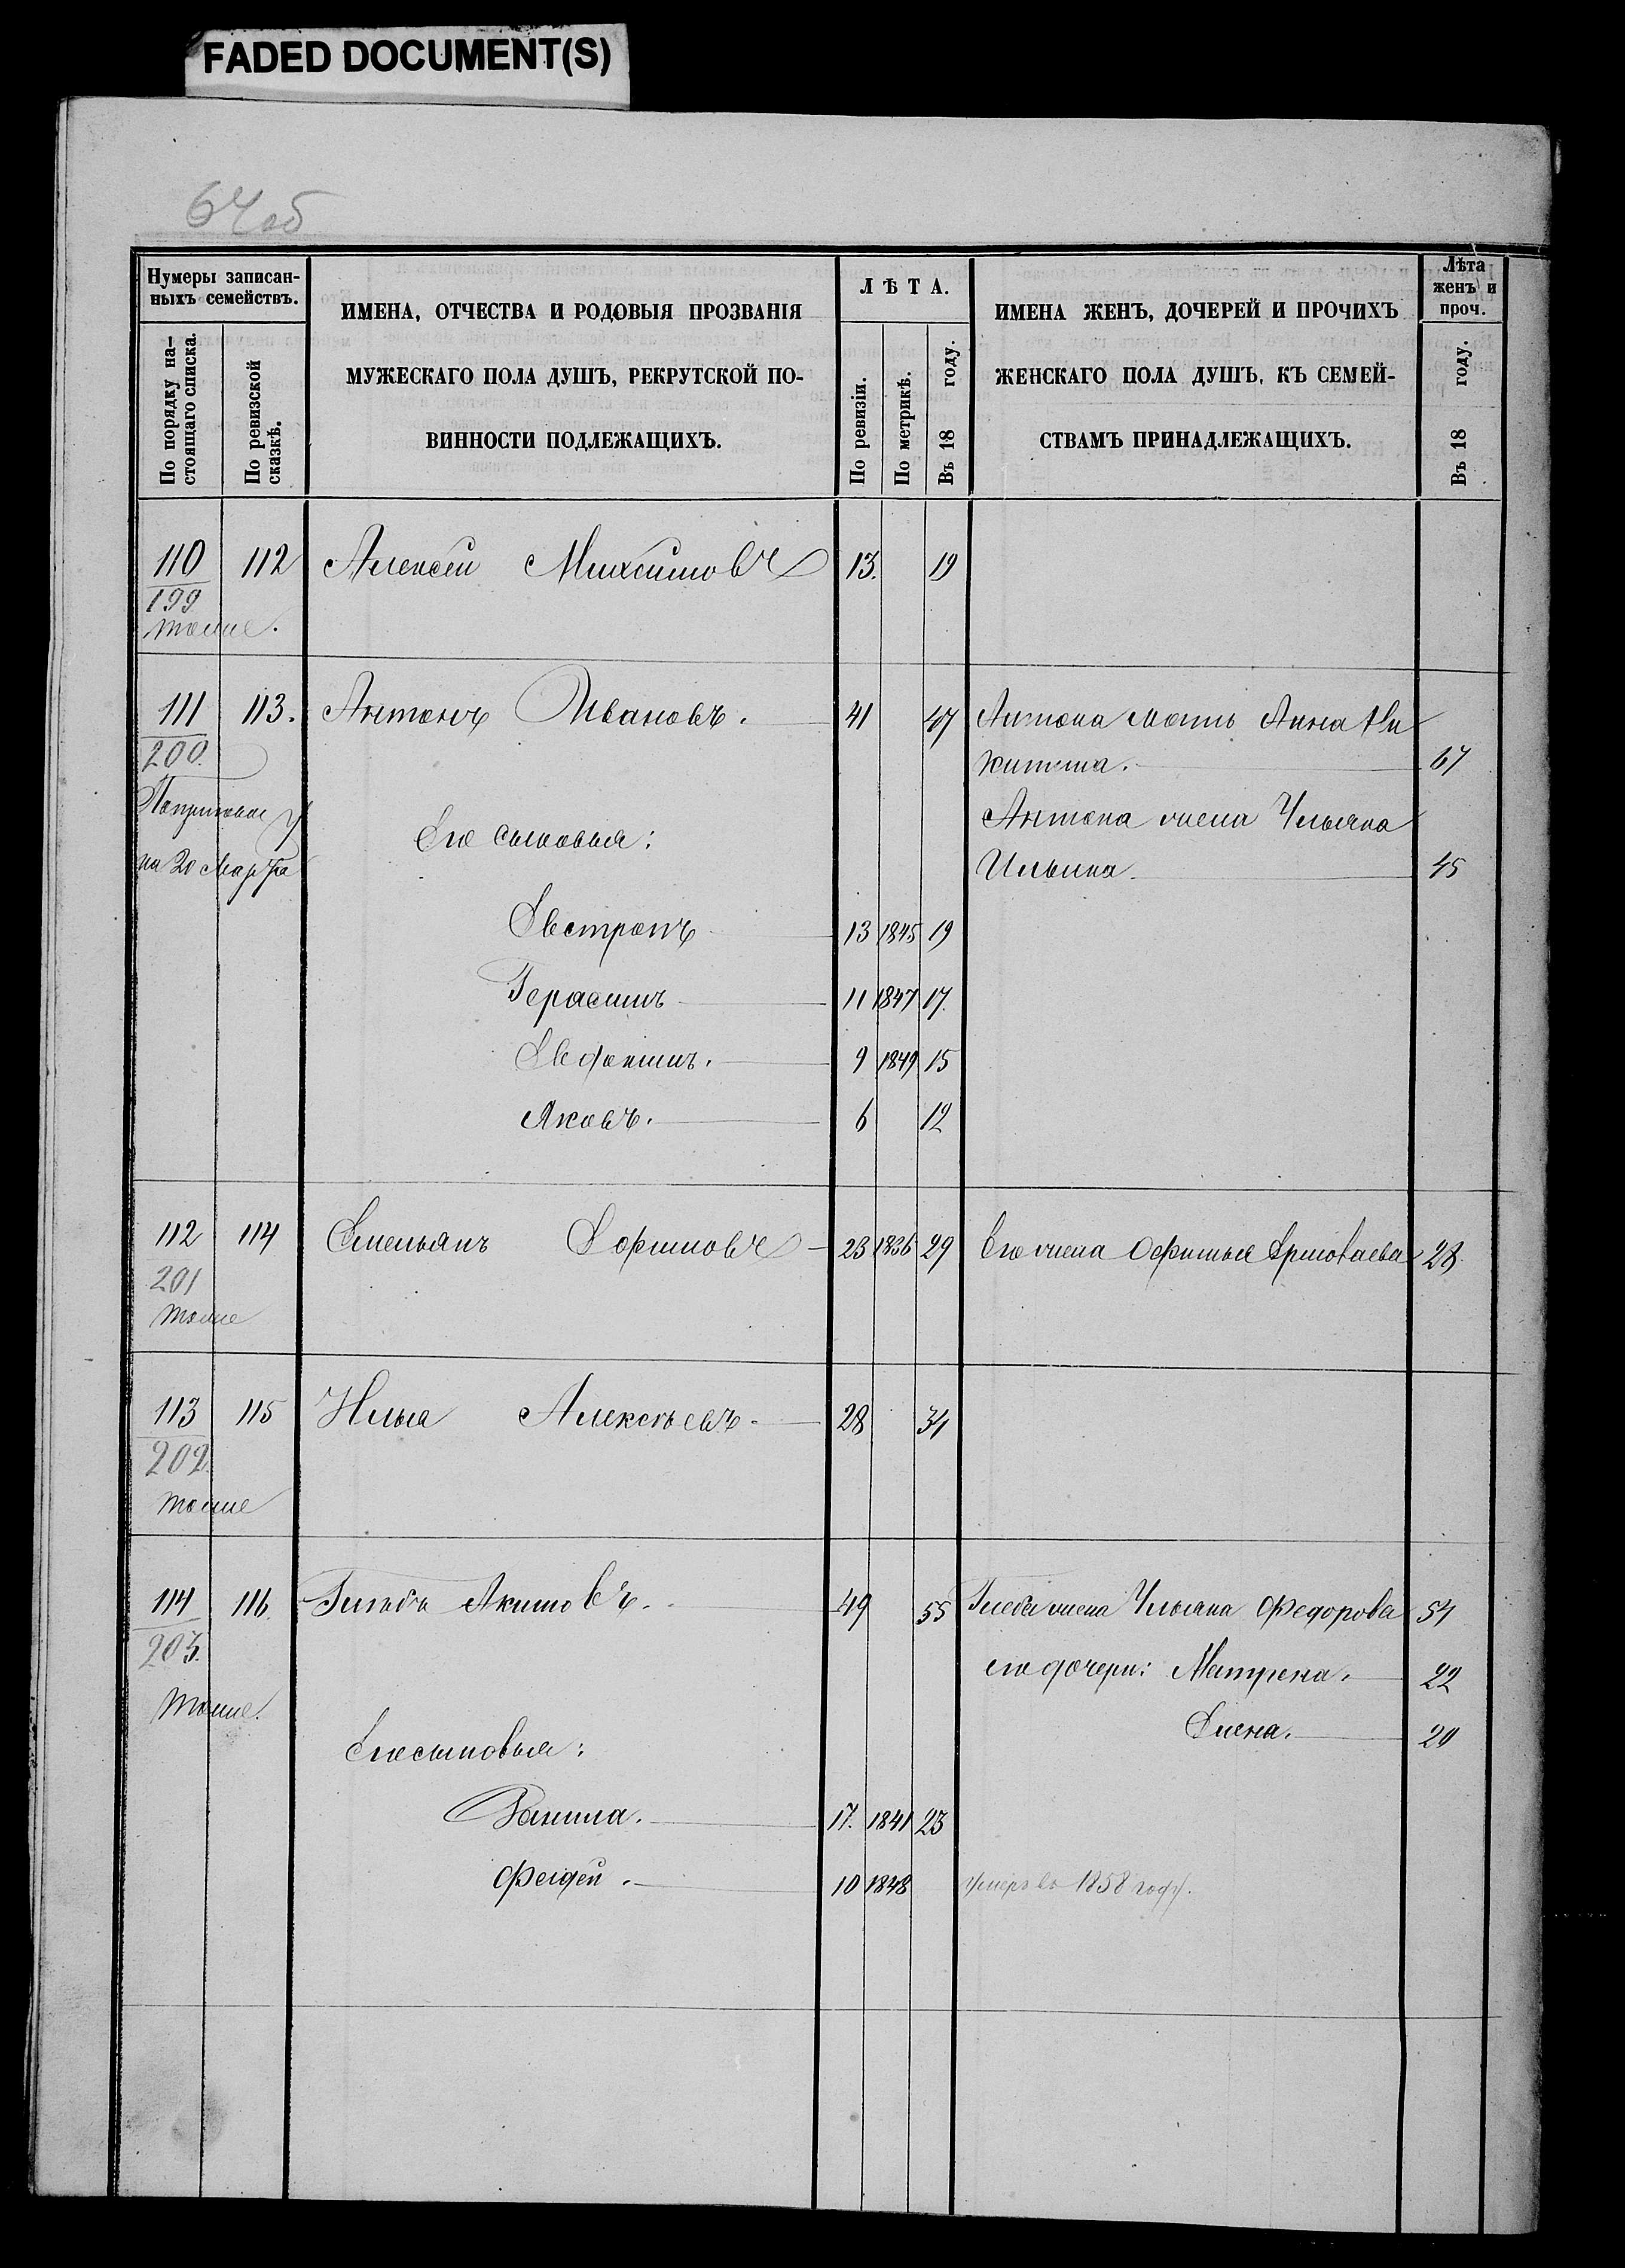 FADED DOCUMENT(S)
64об
Нумеры записан-
ныхъ семействъ.
По порядку на-
стоящаго списка.
По ревизской
сказкѣ.
ИМЕНА, ОТЧЕСТВА И РОДОВЫЯ ПРОЗВАНІЯ
МУЖЕСКАГО ПОЛА ДУШЪ, РЕКРУТСКОЙ ПО-
ВИННОСТИ ПОДЛЕЖАЩИХЪ.
ЛѢТА.
По ревизіи.
По метрикѣ.
Въ 18 году.
ИМЕНА ЖЕНЪ, ДОЧЕРЕЙ И ПРОЧИХЪ
ЖЕНСКАГО ПОЛА ДУШЪ, КЪ СЕМЕЙ-
СТВАМЪ ПРИНАДЛЕЖАЩИХЪ.
Лѣта
женъ и
проч.
Въ 18 году.
110 112 Алексей 13. 19
199
тоже.
111 113. Антонъ Ивановъ. 41 47 Антона мать Анна Ни
200. китина. 67
на 20 Марта
Его сыновья:
Антона жена Ульяна
Ильина. 45
Евстропъ 13 1845 19
Герасимъ 11 1847 17.
Евдокимъ. 9 1849 15
Яковъ. 6 12
112 114 Емельянъ Ефимовъ 23 1836 29 Его жена Офимья 28.
201
тоже
113 115 Илья Алексѣевъ. 28 34
202.
тоже
114 116. Глѣбъ Акимовъ. 49 55 Глеба жена Ульяна Федорова 54
203.
его дочери: Матрена. 22
тоже.
Елена. 20
Его сыновья:
Данила. 17. 1841 23
Фадей. 10 1848 умеръ въ 1858 году.